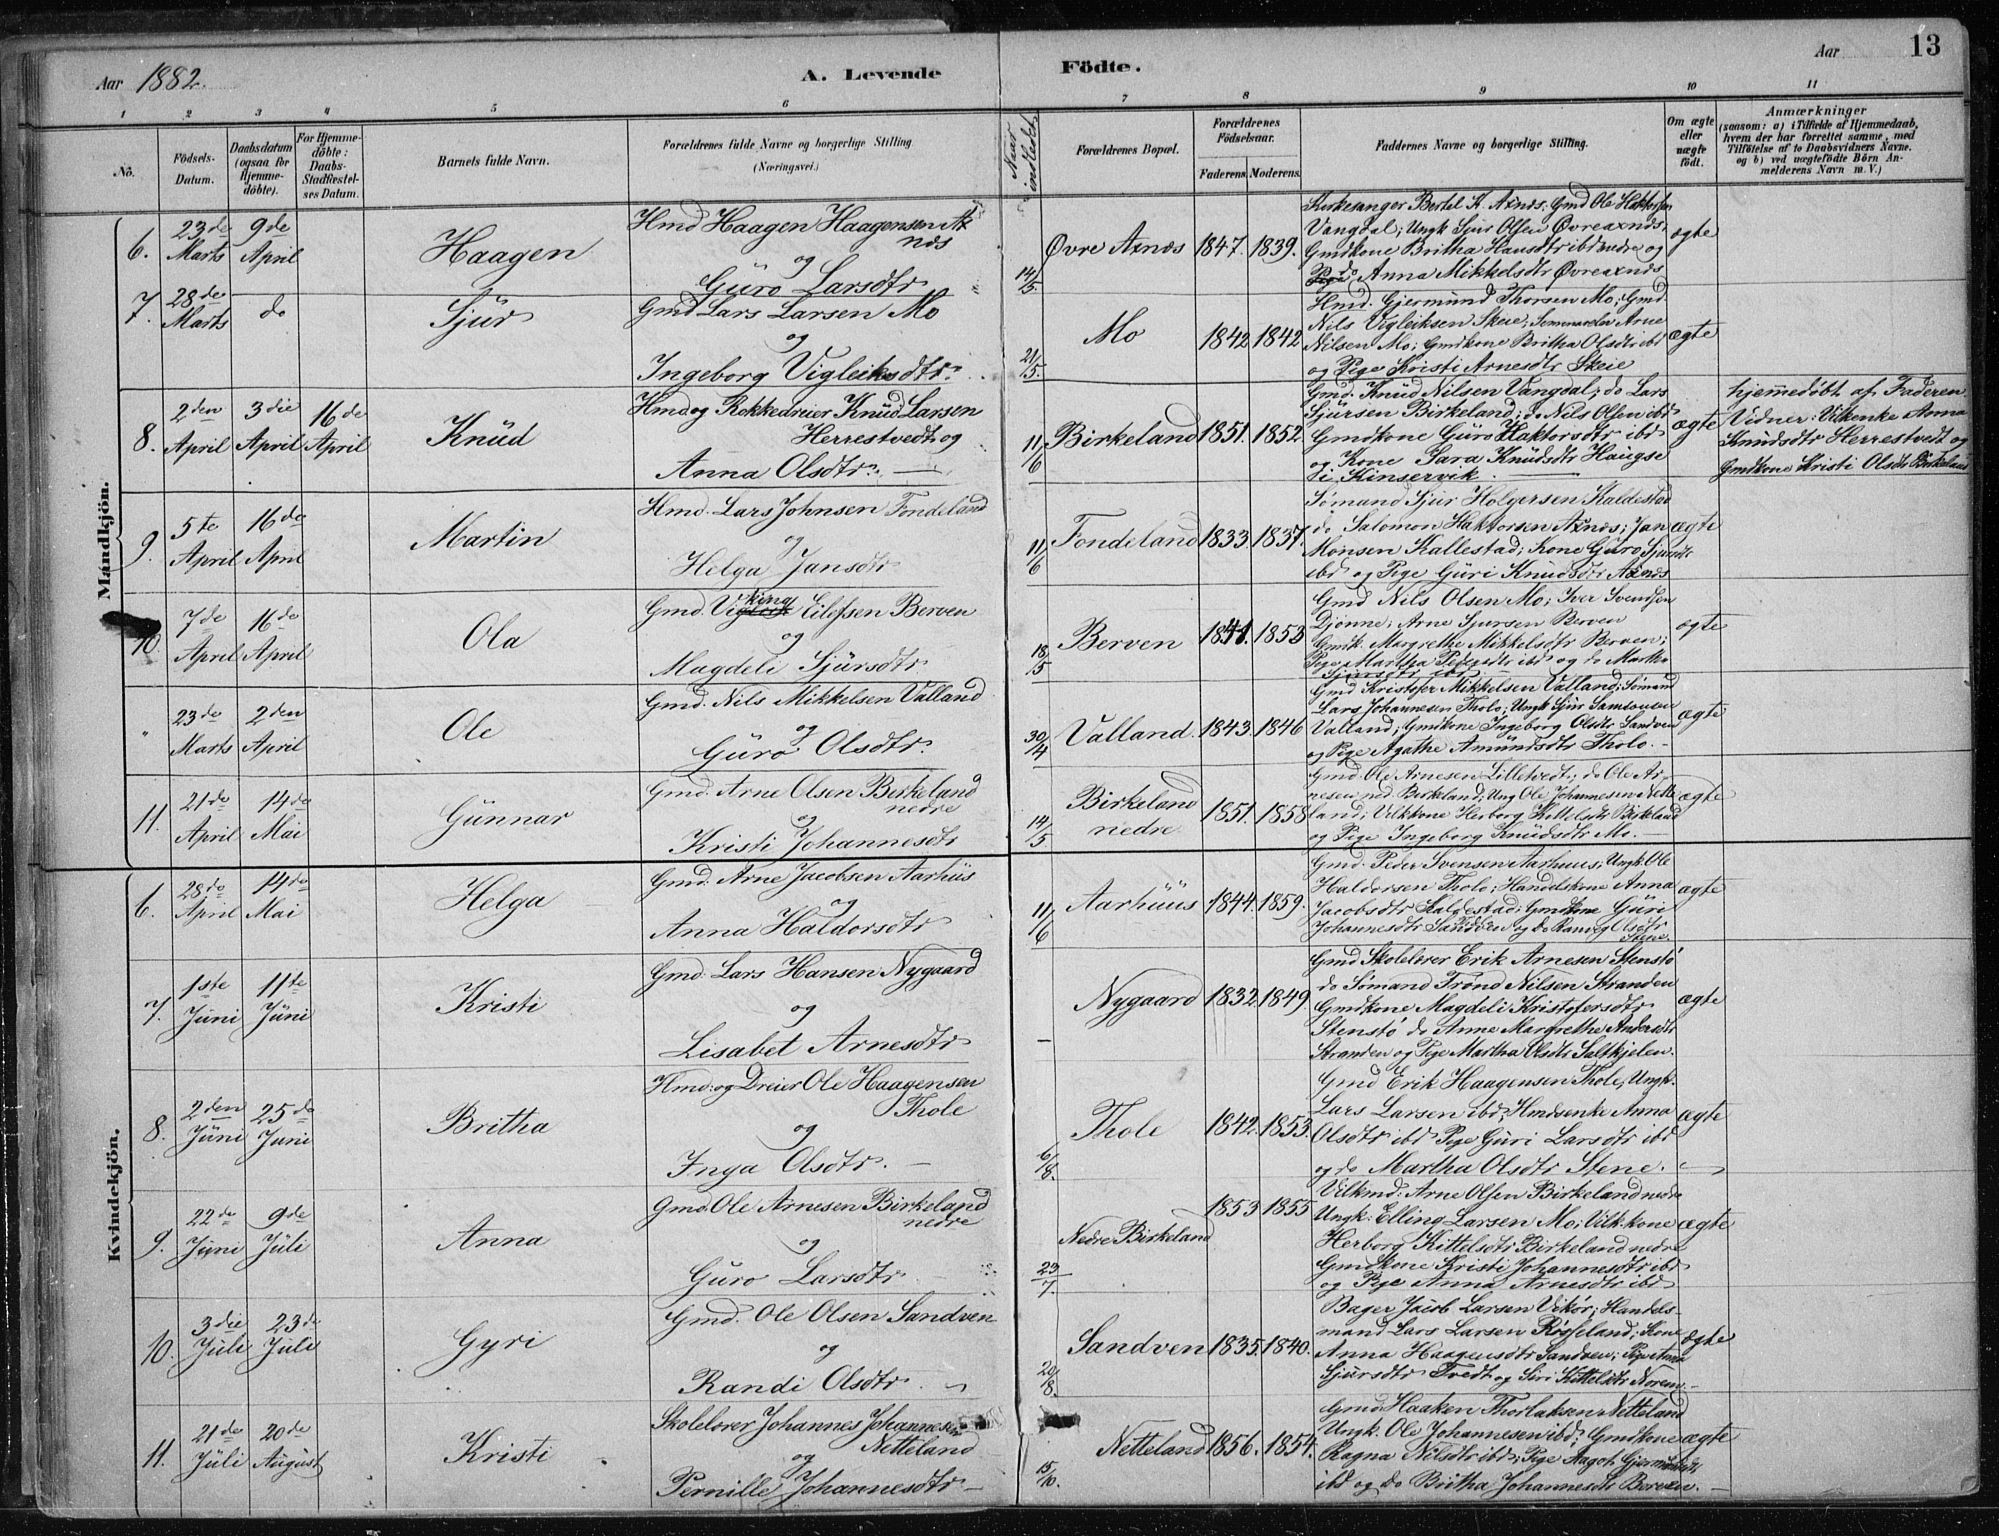 Aar 1882.
A. Levende
Födte.
Aar
13
1
2
3
4
5
6
7
8
9
10
11
No.
Födsels-
Datum.
Daabsdatum
(ogsaa for
Hjemme-
döbte).
For Hjemme-
döbte:
Daabs-
Stadfæstel-
ses Datum.
Barnets fulde Navn.
Forældrenes fulde Navne og borgerlige Stilling
(Næringsvei.)
Naar
indledet
Forældrenes Bopæl.
Forældrenes
Födselsaar.
Faderens. Moderens.
Faddernes Navne og borgerlige Stilling.
Om ægte
eller
uægte
födt.
Anmærkninger
(saasom: a) i Tilfælde af Hjemmedaab,
hvem der har forrettet samme, med
Tilföielse af to Daabsvidners Navne.
og b) ved uægtefödte Börn An-
melderens Navn m. V.)
Mandkjön.
6.
23de
Marts
9de
April
Haagen
Hmd Haagen Haagensen Ax
næs
og
Guro Larsdtr
14/5.
Øvre Axnæs
1847. 1839.
Kirkesanger Bertil K. Axnæs, Gmd Ole Haktorsen
Vangdal; Ungk Sjur Olsen Øvreaxnæs,
Gmdkone Britha Hansdtr ibd nedre og
Pige do Anna Mikkelsdtr Øvreaxnæs
ægte
7.
28de
Marts
do
Sjur
Gmd Lars Larsen Mo
og
Ingeborg Vigleiksdtr.
21/5.
Mo
1842 1842
Hmd. Gjermund Thorsen Mo; Gmd.
Nils Vigleiksen Skeie; Arne
Nilsen Mo; Gmdkone Britha Olsdtr ibd
og Pige Kristi Arnesdtr Skeie
ægte
8.
2den
April
3die
April
16de
April
Knud
Hmd og Rokkedreier Knud Larsen
Herrestvedt og
Anna Olsdtr.
11/6
Birkeland
1851. 1852.
Gmd. Knud Nilsen Vangdal; do Lars
Sjursen Birkeland; do Nils Olsen ibd
Gmdkone Guro Haktorsdtr ibd
og Kone Sara Knudsdtr Haugse
i Kinservik.
ægte
Hjemmedøbt af Faderen
Vidner: Vilkenke Anna
Knudsdtr Herrestvedt og
Gmdkone Kristi Olsdtr Birkeland
9.
5te
April
16de
April
Martin
Hmd. Lars Johnsen Fondeland
og
Helga Jansdtr
11/6
Fondeland
1833. 1837.
Sømand Sjur Holgersen Kaldestad
do Salomon Haktorsen Axnæs; Jan
Monsen Kallestad; Kone Guro Sjursdtr
ibd og Pige Guri Knudsdtr Axnæs
ægte
10.
7de
April
16de
April
Ola
Gmd. Viking Eilefsen Berven
og
Magdeli Sjursdtr
18/5
Berven
1841. 1853
Gmd Nils Olsen Mo; Iver Svendsen
Djønne; Arne Sjursen Berven
Gmk. Margrethe Mikkelsdtr Berven;
Pige Martha Pedersdtr ibd og do Martha
Sjursdtr ibd
ægte
"
23de
Marts
2den
April
Ole
Gmd. Nils Mikkelsen Valland
og
Guro Olsdtr.
30/4
Valland.
1843. 1846
Gmd Kristofer Mikkelsen Valland; Sømand
Lars Johannesen Tholo; Ungk Sjur Samsonsen
Valland; Gmdkone Ingeborg Olsdtr Sandven
og Pige Agathe Amundsdtr Tholo.
ægte
11.
21de
April
14de
Mai
Gunnar
Gmd. Arne Olsen Birkeland
nedre
og
Kristi Johannesdtr
14/5
Birkeland
nedre
1851. 1858
Gmd. Ole Arnesen Lilletvedt; do Ole Ar-
nesen ned. Birkeland; Ung Ole Johannesen Nette
land; Vilkkone Herborg Kittelsdtr Birkeland
og Pige Ingeborg Knudsdtr Mo.
ægte
Kvindekjön.
6.
28de
April
14de
Mai
Helga
Gmd. Arne Jacobsen Aarhus
og
Anna Haldorsdtr
11/6
Aarhuus
1844. 1859.
Gmd. Peder Svensen Aarhuus; Ungk. Ole
Haldorsen Tholo; Handelskone Anna
Jacobsdtr Kaldestad; Gmdkone Guri
Johannesdtr Sandven og do Ranveg Olsdtr
Stene.
ægte
7.
1ste
Juni
11te
Juni
Kristi
Gmd. Lars Hansen Nygaard
og
Lisabet Arnesdtr
–
Nygaard
1832 1849.
Gmd Skolelærer Erik Arnesen Stenstø
do Sømand Trond Nilsen Stranden
Gmdkone Magdeli Kristofersdtr
Stenstø do Anne Margrethe Andersdtr
Stranden og Pige Martha Olsdtr Saltkjelen.
ægte
8.
2den
Juni
25de
Juni
Britha
Hmd. og Dreier Ole Haagensen
Thole
og
Inga Olsdtr.
6/8.
Thole
1842. 1853.
Gmd Erik Haagensen Thole, Ungk.
Lars Larsen ibd; Hmdsenke Anna
Olsdtr ibd Pige Guri Larsdtr ibd
og do Martha Olsdtr Stene.
ægte
9.
22de
Juni
9de
Juli
Anna
Gmd. Ole Arnesen Birkeland
nedre
og
Guro Larsdtr
23/7.
Nedre Birkeland
1853 1855
Vilkmd. Arne Olsen Birkeland nedre
Ungk: Elling Larsen Mo; Vilk.kone
Herborg Kittelsdtr Birkeland nedre
Gmdkone Kristi Johannesdtr ibd
og Pige Anna Arnesdtr ibd
ægte
10.
3die
Juli
23de
Juli
Gyri
Gmd. Ole Olsen Sandven
og
Randi Olsdtr.
20/8.
Sandven
1835. 1840.
Bager Jacob Larsen Vikør; Handels-
mand Lars Larsen Røsseland; Kone
Anna Haagensdtr Sandven; Pige Anna
Sjursdtr Tvedt og Siri Kittelsdtr Norem.
ægte
11.
21de
Juli
20de
August
Kristi
Skolelærer Johannes Johannesen
Netteland
og
Pernille Johannesdtr
15/10.
Netteland
1856. 1854.
Gmd Haaken Thorlaksen Netteland
Ungk. Ole Johannesen ibd; Gmdkone
Ragna Nilsdtr ibd; Pige Aagot Gjermundsdtr
ibd og do Britha Johannesdtr Berven.
ægte